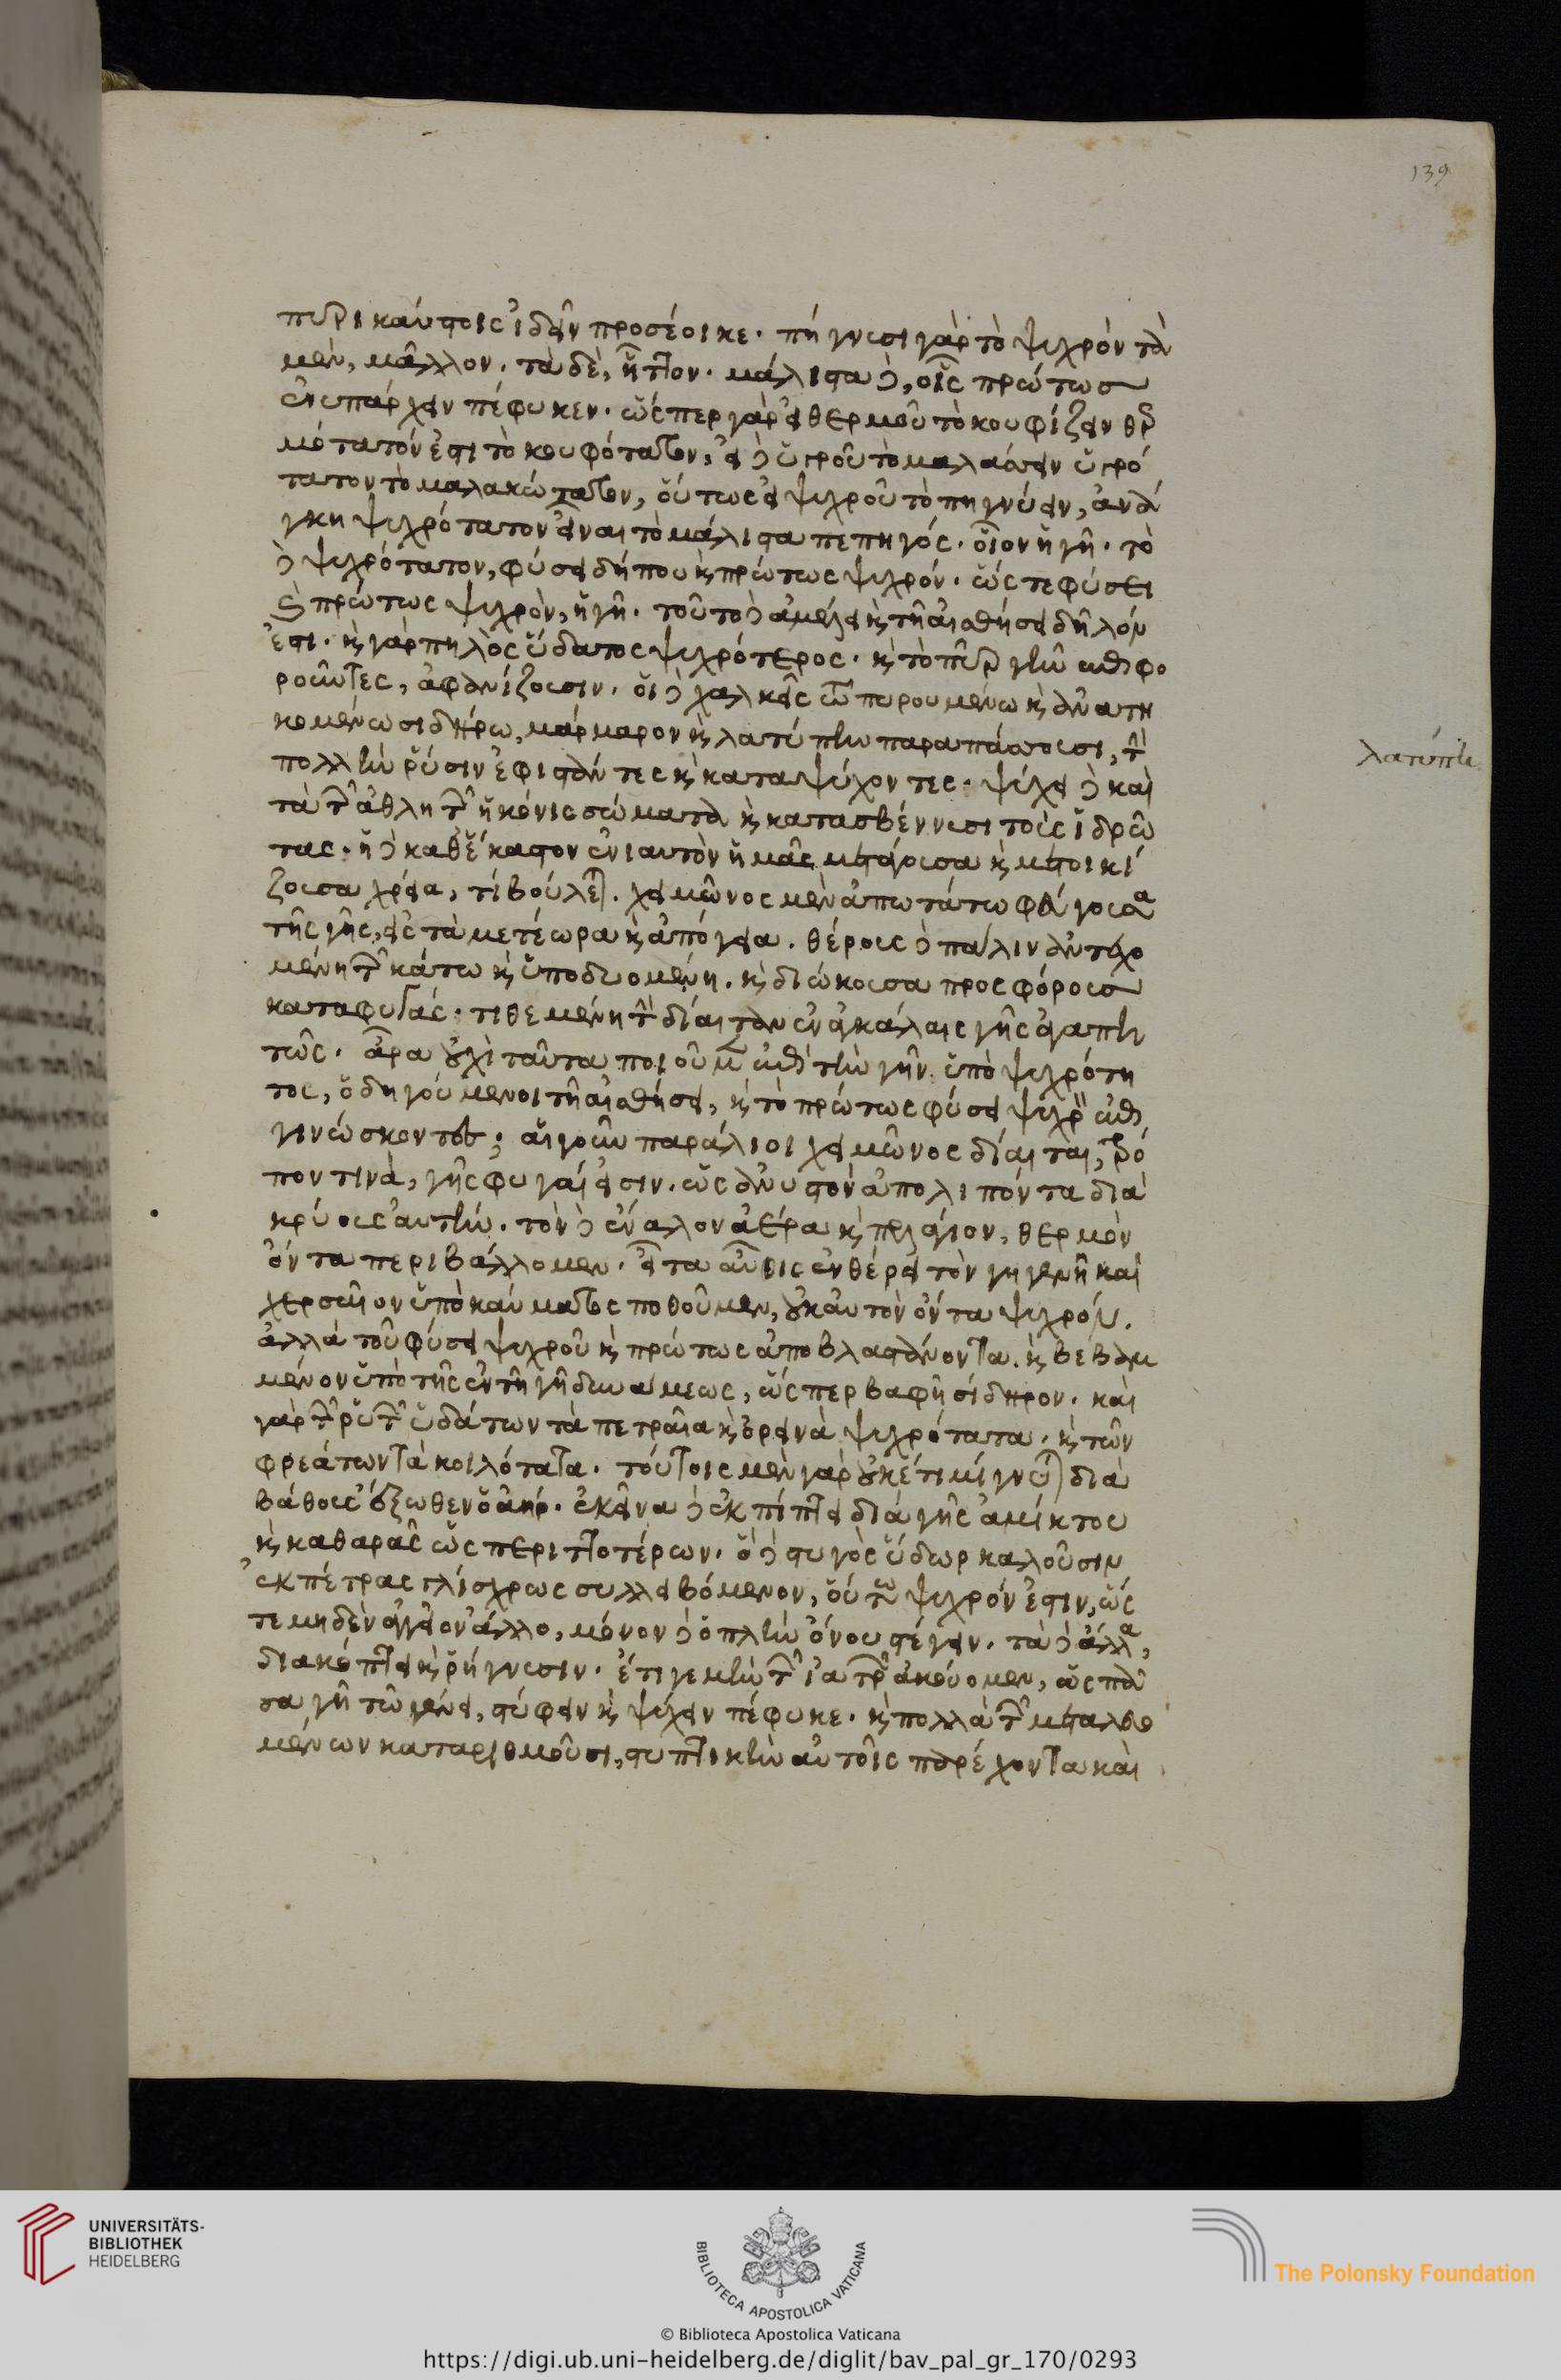 139
πυρικαύστοις ἰδεῖν προσέοικε. πήγνυσι γὰρ τὸ ψυχρὸν τὰ
μὲν, μᾶλλον. τὰ δὲ, ἧττον. μάλιστα δὲ, οἷς πρώτως
ἐνυπάρχειν πέφυκεν. ὥσπερ γὰρ εἰ θερμοῦ τὸ κουφίζειν θερ
μότατόν ἐστι τὸ κουφότατον, εἰ δὲ ὑγροῦ τὸ μαλάσσειν ὑγρό
τατον τὸ μαλακώτατον, οὕτως εἰ ψυχροῦ τὸ πηγνύειν, ἀνά
γκη ψυχρότατον εἶναι τὸ μάλιστα πεπηγός. οἷον ἡ γῆ. τὸ
δὲ ψυχρότατον, φύσει δήπου καὶ πρώτως ψυχρόν. ὥστε φύσει
καὶ πρώτως ψυχρὸν, ἡ γῆ. τοῦτο δὲ ἀμέλει καὶ τῇ αἰσθήσει δῆλόν
ἐστι. καὶ γὰρ πηλὸς ὕδατος ψυχρότερος. καὶ τὸ πῦρ γῆν ἐπιφο
ροῦντες, ἀφανίζουσιν. οἱ δὲ χαλκεῖς τῷ πυρουμένῳ καὶ ἀνατη
κομένῳ σιδήρῳ, μάρμαρον καὶ λατύπην παραπάσσουσι, τὴν
πολλὴν ῥύσιν ἐφιστάντες καὶ καταψύχοντες. ψύχει δὲ καὶ
τὰ τῶν ἀθλητῶν ἡ κόνις σώματα καὶ κατασβέννυσι τοὺς ἱδρῶ
τας. ἡ δὲ καθ' ἕκαστον ἐνιαυτὸν ἡμᾶς μετάγουσα καὶ μετοικί
ζουσα χρεία, τί βούλεται. χειμῶνος μὲν ἀπωτάτω φεύγουσα
τῆς γῆς, εἰς τὰ μετέωρα καὶ ἀπόγεια. θέρους δὲ πάλιν ἀντεχο
μένη τῶν κάτω καὶ ὑποδυομένη. καὶ διώκουσα προσφόρους
καταφυγάς. τιθεμένη τὴν δίαιταν ἐν ἀγκάλαις γῆς ἀγαπη
τῶς. ἆρα οὐχὶ ταῦτα ποιοῦμεν ἐπὶ τὴν γῆν ὑπὸ ψυχρότη
τος, ὁδηγούμενοι τῇ αἰσθήσει, καὶ τὸ πρώτως φύσει ψυχρὸν ἐπι
γινώσκοντες; αἱ γοῦν παράλιοι χειμῶνος δίαιται, τρό
πον τινὰ, γῆς φυγαί εἰσιν. ὡς ἀνυστὸν ἀπολιπόντα διὰ
κρύους αὐτήν. τὸν δὲ ἔναλον ἀέρα καὶ πελάγιον, θερμὸν
ὄντα περιβάλλομεν. εἶτα αὖθις ἐν θέρει τὸν γηγενῆ καὶ
χερσαῖον ὑπὸ καύματος ποθοῦμεν, οὐκ αὐτὸν ὄντα ψυχρόν.
ἀλλὰ τοῦ φύσει ψυχροῦ καὶ πρώτως ἀποβλαστάνοντα. καὶ βεβαμ
μένον ὑπὸ τῆς ἐν τῇ γῇ δυνάμεως, ὥσπερ βαφῇ σίδηρον. καὶ
γὰρ τῶν ῥυτῶν ὑδάτων τὰ πετραῖα καὶ ὀρεινὰ ψυχρότατα. καὶ τῶν
φρεάτων τὰ κοιλότατα. τούτοις μὲν γὰρ οὐκέτι μίγνυται διὰ
βάθους ἔξωθεν ὁ ἀήρ. ἐκεῖνα δὲ ἐκπίπτει διὰ γῆς ἀμίκτου
καὶ καθαρᾶς ὡς περιττοτέρων. ὃ δὲ στυγὸς ὕδωρ καλοῦσιν
ἐκ πέτρας γλίσχρως συλλειβόμενον, οὕτω ψυχρόν ἐστιν, ὥς
τε μηδὲν ἀγγεῖον ἄλλο, μόνον δὲ ὁπλὴν ὄνου στέγειν. τὰ δὲ ἄλλα,
διακόπτει καὶ ῥήγνυσιν. ἔτι γε μὴν τῶν ἰατρῶν ἀκούομεν, ὡς πᾶ
σα γῆ τῷ γένει, στύφειν καὶ ψύχειν πέφυκε. καὶ πολλὰ τῶν μεταλλευο
μένων καταριθμοῦσι, στυπτικὴν αὐτοῖς παρέχοντα καὶ
λατύπη
UNIVERSITÄTS-
BIBLIOTHEK
HEIDELBERG
BIBLIOTECA APOSTOLICA VATICANA
The Polonsky Foundation
© Biblioteca Apostolica Vaticana
https://digi.ub.uni-heidelberg.de/diglit/bav_pal_gr_170/0293